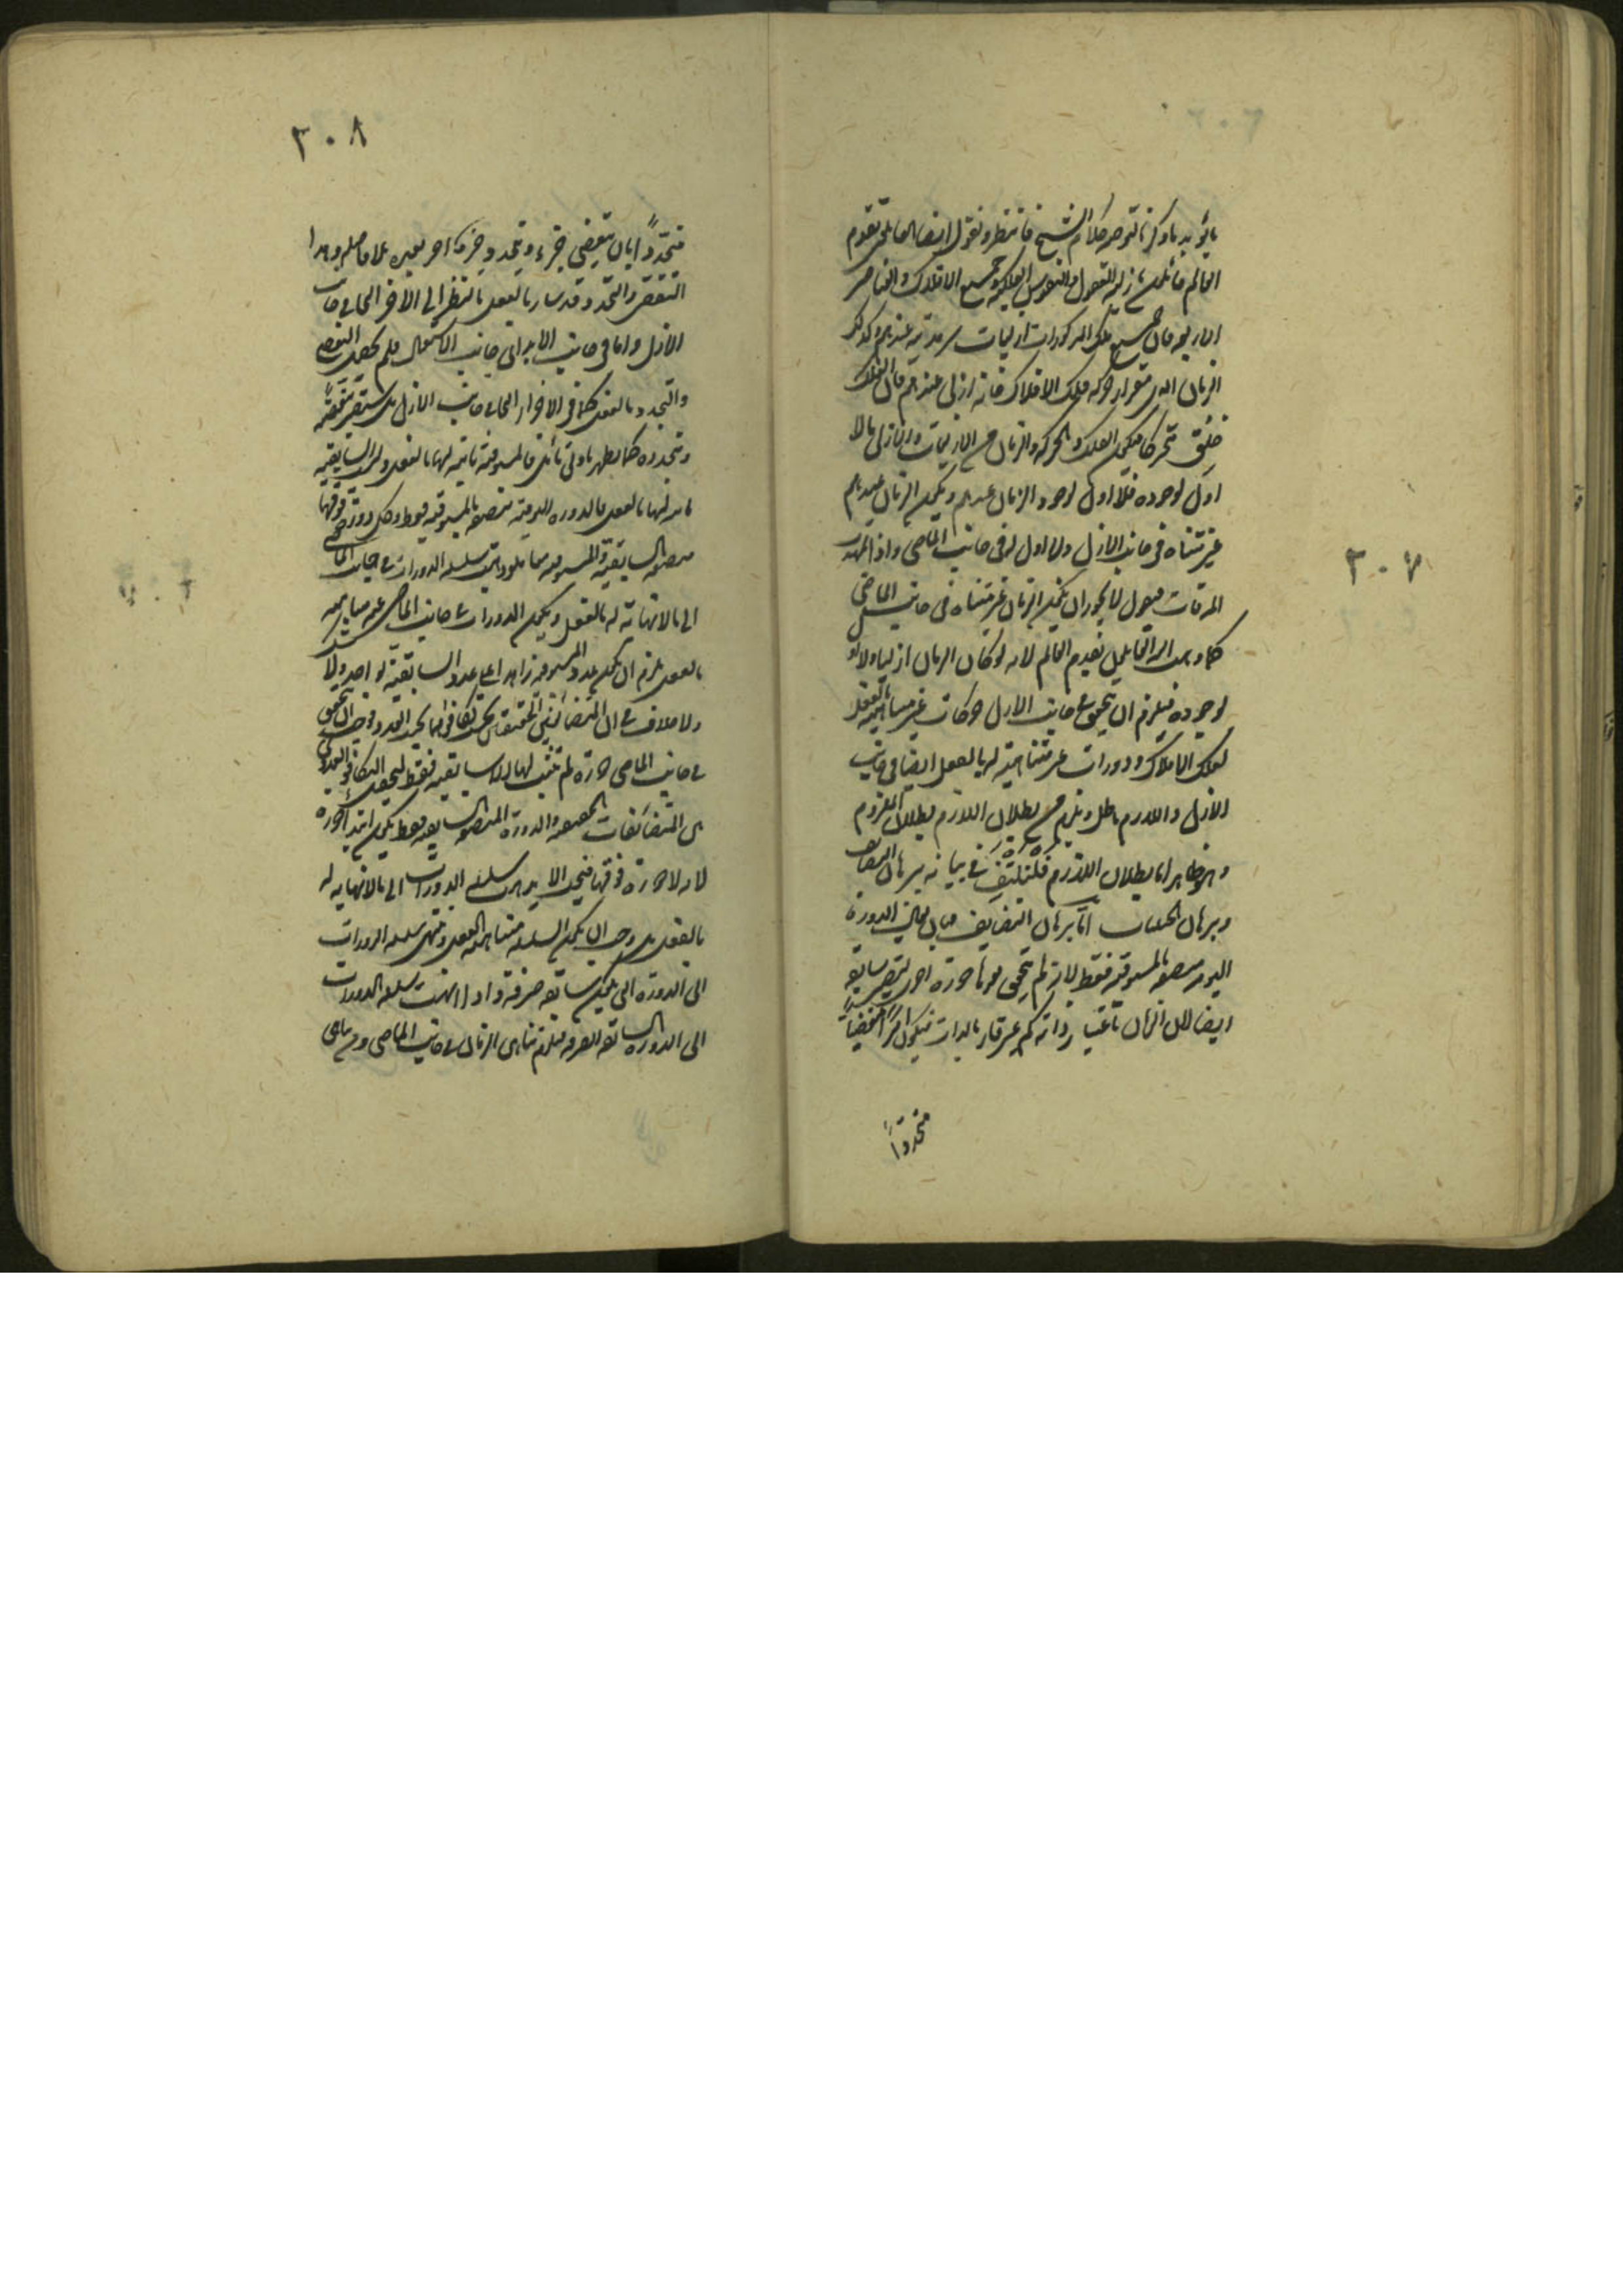 ٢٠٧
يؤيد ما ذكرنا لتوجيه كلام الشيخ فانتظر ونقول ايضا القائلين بقدم
العالم قائلون بازلية العقول والنفوس الفلكية وجميع الافلاك والعناصر
الاربعة فان جميع تلك المذكورات ازليات سرمدية عندهم وكذلك
الزمان الذى مقدار حركة فلك الافلاك فانه ازلى عندهم فان الفلك
خلق متحركا فيكون الفلك والحركة والزمان من الازليات والازلى ما لا
اول لوجوده فلا اول لوجود الزمان عندهم ويكون الزمان عندهم
غير متناه فى جانب الازل ولا اول له فى جانب الماضى واذا تمهد
المقدمات فنقول لا يجوز ان يكون الزمان غير متناه فى جانب الماضى
كما ذهب اليه القائلين بقدم العالم لانه لو كان الزمان ازليا ولا اول
لوجوده فيلزم ان يتحقق فى جانب الازل حركات غير متناهية بالفعل
لفلك الافلاك ودورات غير متناهية له بالفعل ايضا فى جانب
الازل واللازم باطل ويلزم من بطلان اللازم بطلان الملزوم
وهو ظاهر اما بطلان اللازم فلنكتف فى بيانه ببرهان التضايف
وبرهان الحيثيات اما برهان التضايف فبان يقال الدورة
اليومية متصفة بالمسبوقية فقط لانه لم يتحقق بعدها دورة اخرى لتتصف بسابقية
ايضا لان الزمان باعتبار ذاته كم غير قار بالذات فيكون امرا منقضيا
متجددا
٣٠٨
متجددا بان ينقضى جزء ويتجدد جزء اخر بعده بلا فاصلة وهذا
التقضى والتجدد قد صار بالفعل بالنظر الى الاخر الحالى جانب
الازل واما فى جانب الابد اى جانب الاستقبال فلم يحصل التقضى
والتجدد بالفعل كما فى الاخر الحالى جانب الازل بل سيصير تقضيه
وتجدده كما يظهر بادنى تأمل فالمسبوقية ثابتة لها بالفعل دون السابقية
ثابتة لها بالفعل فالدورة اليومية متصفة بالمسبوقية فقط وكل دورة فوقها
متصفة بالسابقية والمسبوقية معا فلو ذهبت سلسلة الدورات فى جانب الماضى
الى ما لا نهاية له بالفعل ويكون الدورات فى جانب الماضى غير متناهية
بالفعل يلزم ان يكون عدد المسبوقية زايدا على عدد السابقية بواحد ولا شك
ولا خلاف فى ان المتضائفين الحقيقيين يجب تكافؤهما بحسب العدد فيجب ان يتحقق
فى جانب الماضى دورة لم يثبت لها الا السابقية فقط ليتحقق التكافؤ العددى
بين المتضايفات الحقيقية والدورة المتصفة بالسابقية فقط يكون ابتداء دورة
لانه لا دورة فوقها فيجب ان لا يذهب سلسلة الدورات الى ما لا نهاية له
بالفعل بل وجب ان يكون السلسلة متناهية بالفعل وتنتهى سلسلة الدورات
الى الدورة التى يكون سابقة صرفة واذا انتهت سلسلة الدورات
الى الدورة السابقة الصرفة فيلزم تناهى الزمان فى جانب الماضى ومن تناهى